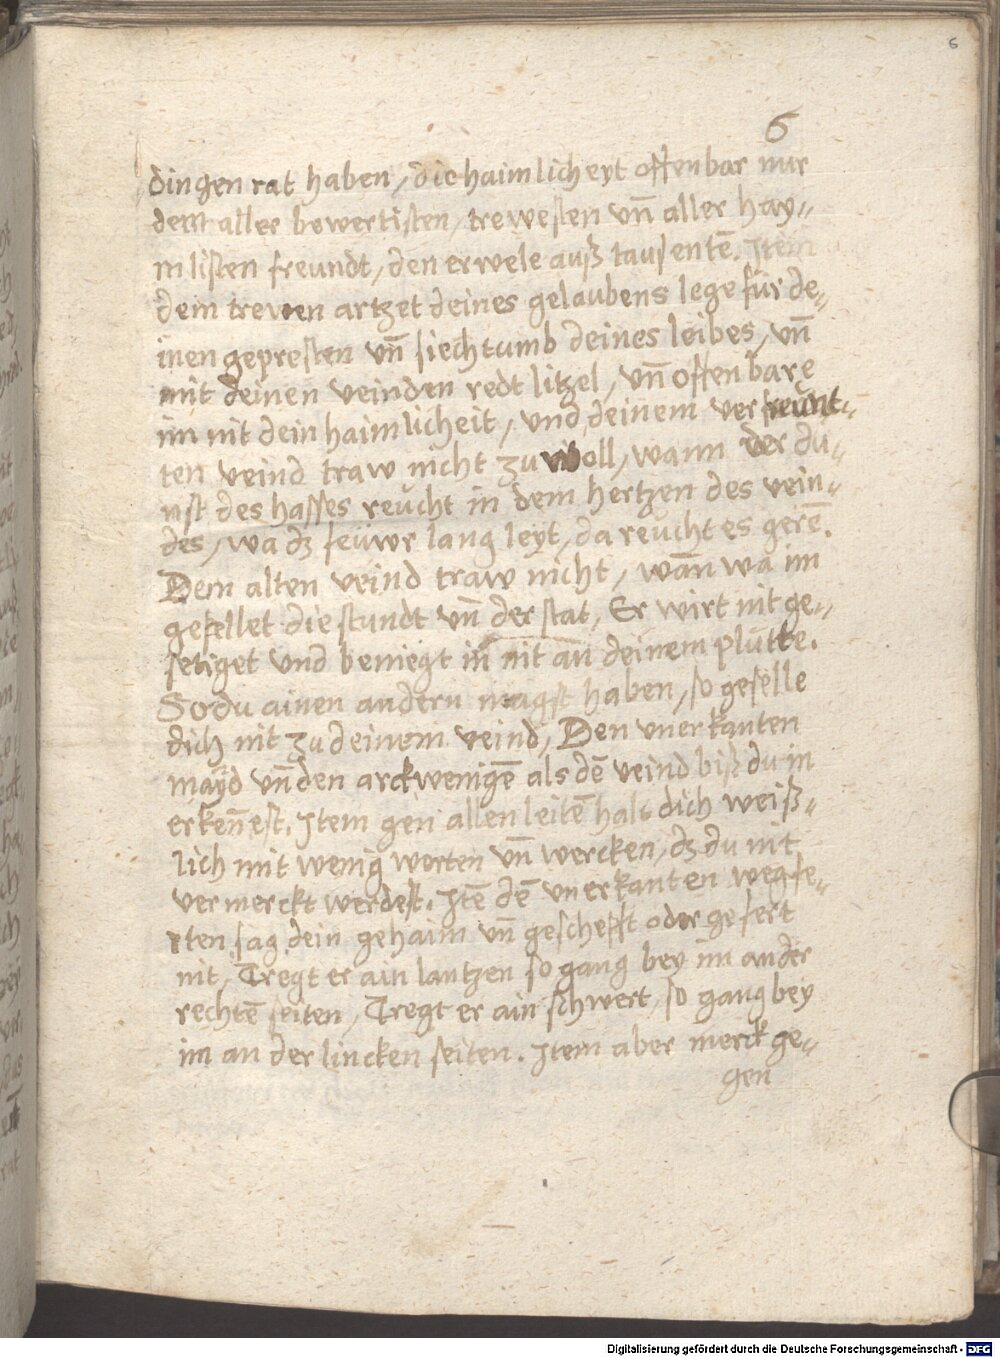 6
6
dingen rat haben, die haimlicheyt offenbar nur
dem aller bewertisten, trewesten vn̄ aller hay⸗
mlisten freundt, den erwele auß tausentē. Item
dem trewen artzet deines gelaubens lege für de⸗
inen gepresten vn̄ siechtumb deines leibes, vn̄
mit deinen veinden redt litzel, vn̄ offenbare
im nit dein haimlicheit, vnd deinem verfreunt⸗
ten veind traw nicht zu woll, wann der du⸗
nst des hasses reucht in dem hertzen des vein⸗
des, wa dz feüwr lang leyt, da reucht es gerē.
Dem alten veind traw nicht, wan̄ wa im
gefellet die stundt vn̄ der stat, Er wirt nit ge⸗
setiget vnd beniegt in nit an deinem plutte.
So du ainen andern magst haben, so geselle
dich nit zu deinem veind, Den vnerkanten
mayd vn̄ den arckwenigē als dē veind biß du in
erken̄est. Item gen allen leitē halt dich weiß⸗
lich mit wenig worten vn̄ wercken, dz du nit
vermerckt werdest. Itē dē vnerkanten wegfe⸗
rten sag dein gehaim vn̄ geschefft oder gefert
nit, Tregt er ain lantzen so gang bey im an der
rechtē seiten, Tregt er ain schwert, so gang bey
im an der lincken seiten. Item aber merck ge⸗
gen
Digitalisierung gefördert durch die Deutsche Forschungsgemeinschaft - DFG